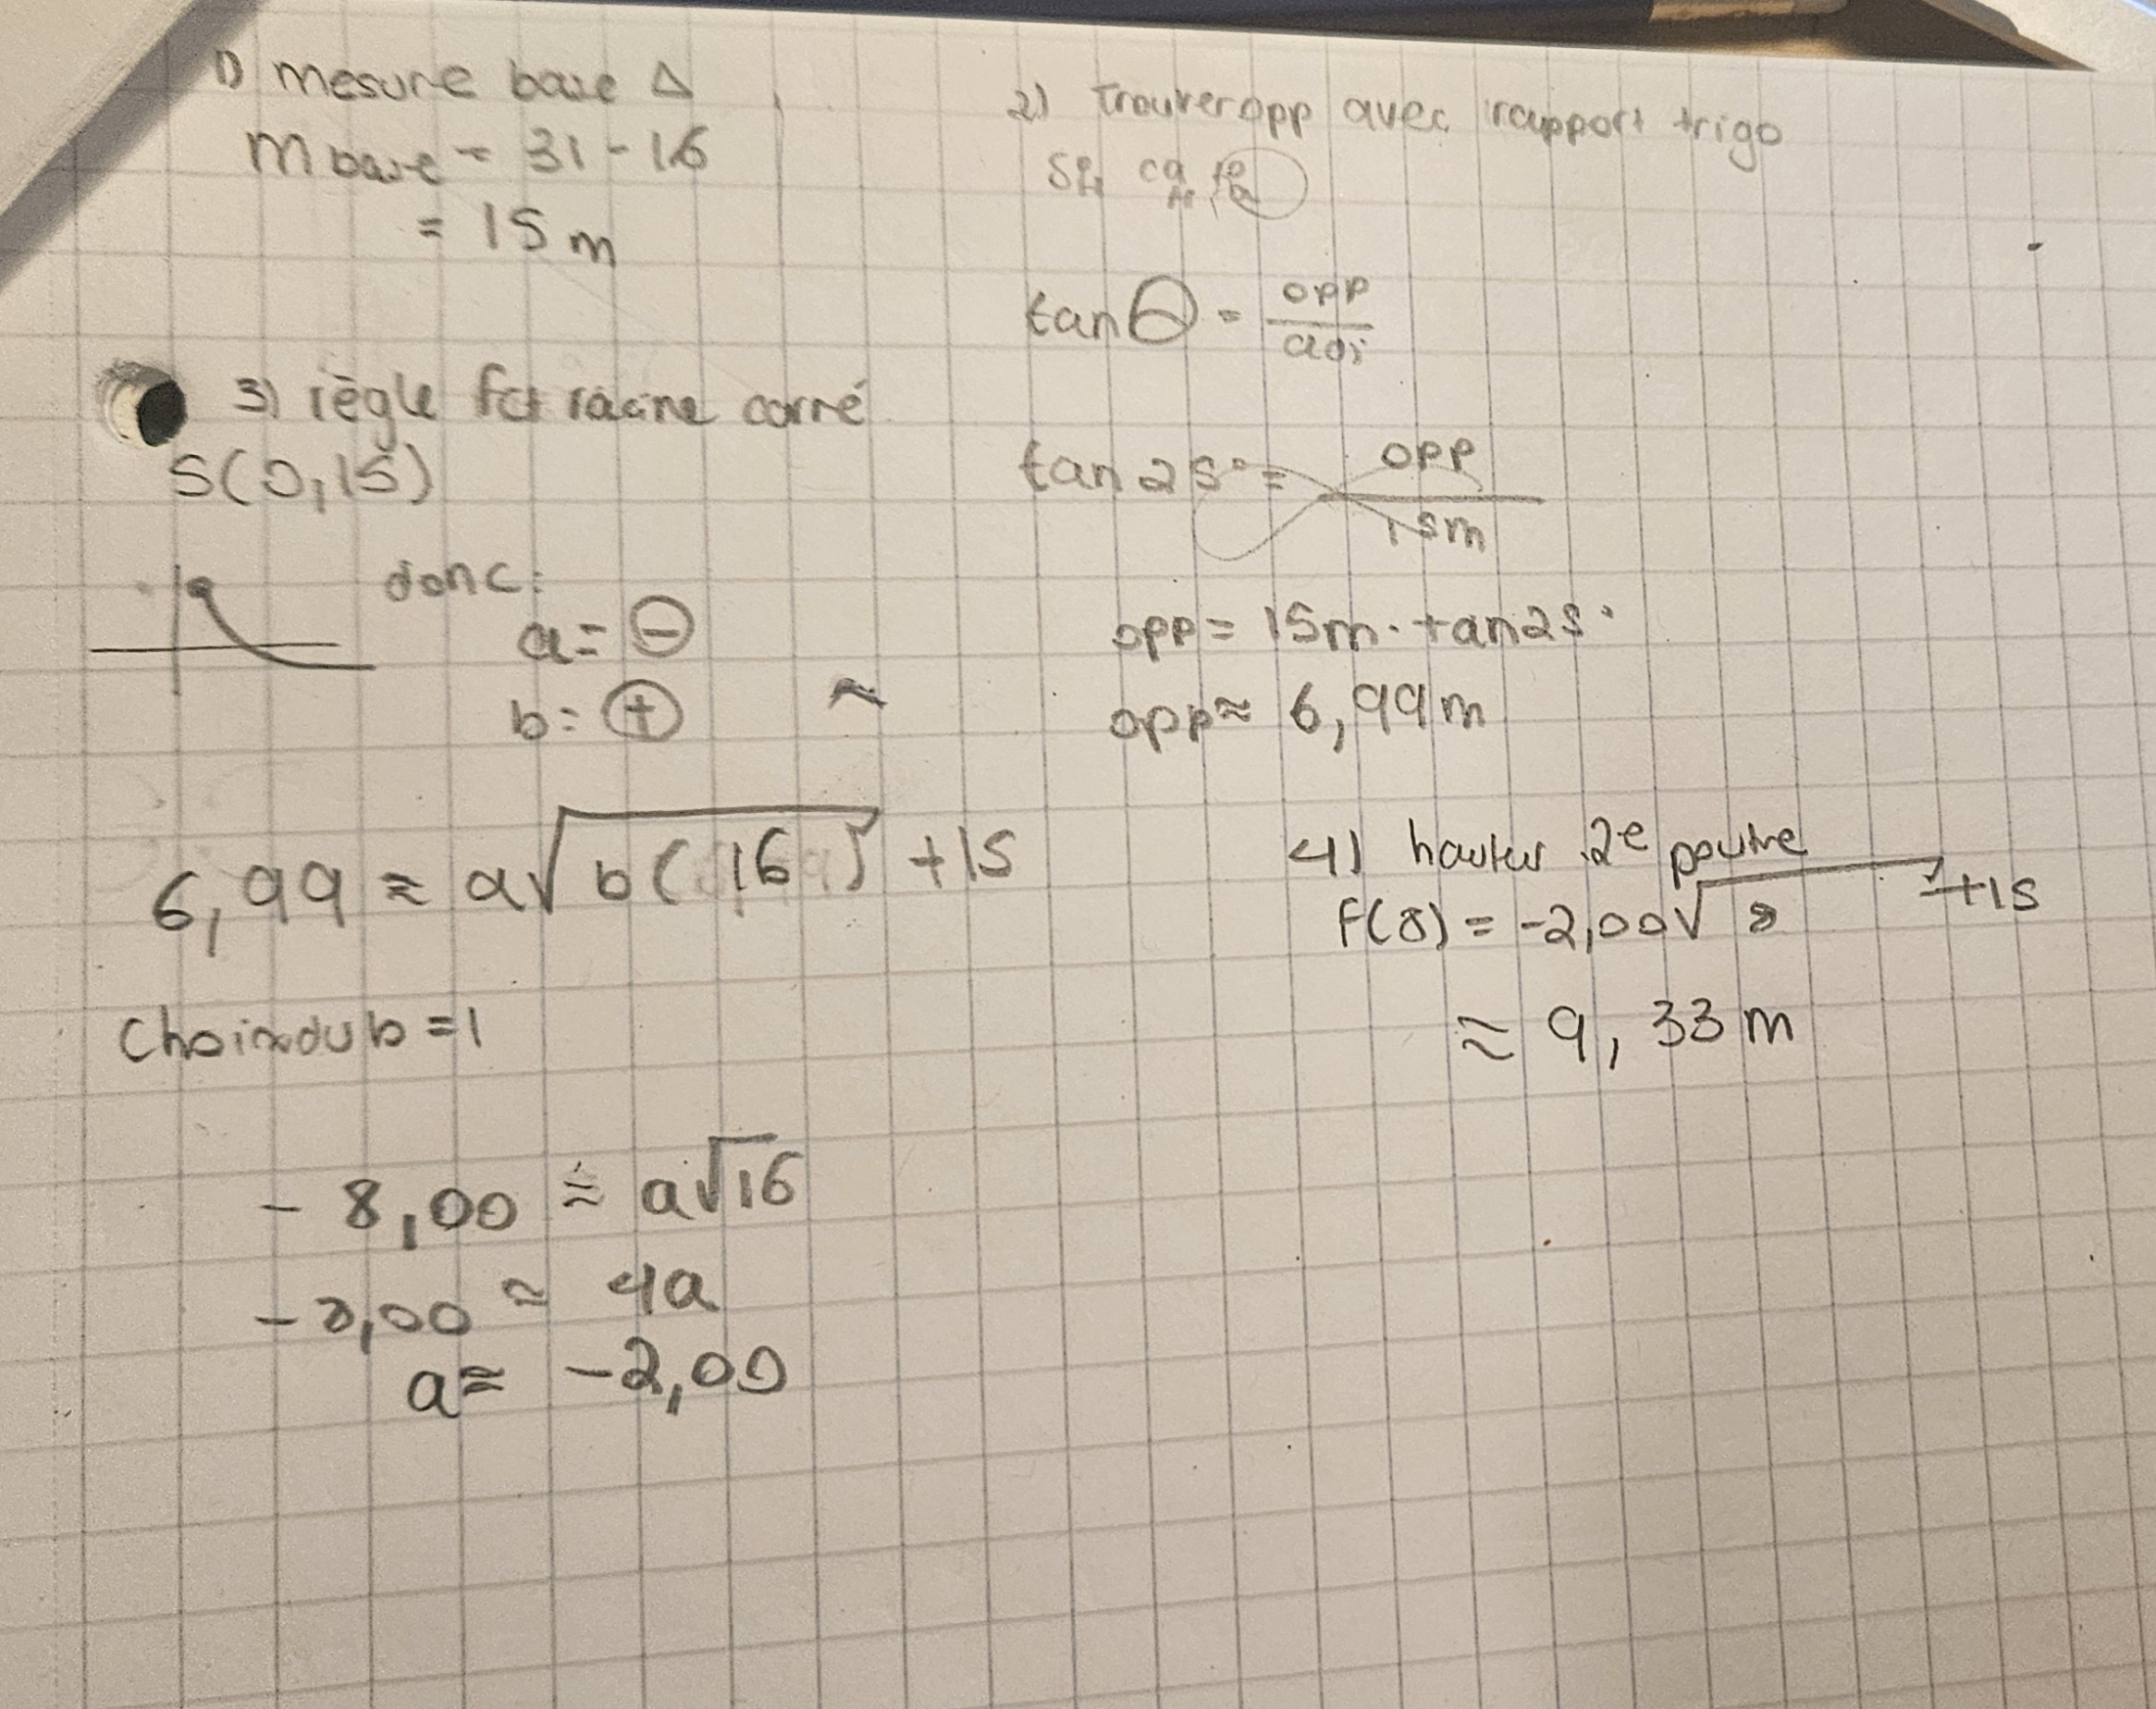 1) mesure base Δ
m base = 31 - 16
= 15 m
2) Trouver opp avec rapport trigo
tan θ = opp / adj
tan 25° = opp / 15m
opp = 15m · tan25°
opp ≈ 6,99 m
3) règle fct racine carré
S(0,15)
donc:
a = ⊖
b = ⊕
≈
6,99 ≈ a√b(16) + 15
Choix du b = 1
- 8,00 ≈ a√16
- 8,00 ≈ 4a
a ≈ -2,00
4) hauteur 2e poutre
f(8) = -2,00√8 + 15
≈ 9,33 m